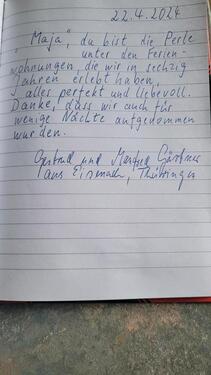 22.4.2024
"Maja", du bist die Perle
unter den Ferien-
wohnungen, die wir in sechzig
Jahren erlebt haben,
alles perfekt und liebevoll.
Danke, dass wir auch für
wenige Nächte aufgenommen
wurden.
Gertrud und Manfred Gärtner
aus Eisenach, Thüringen